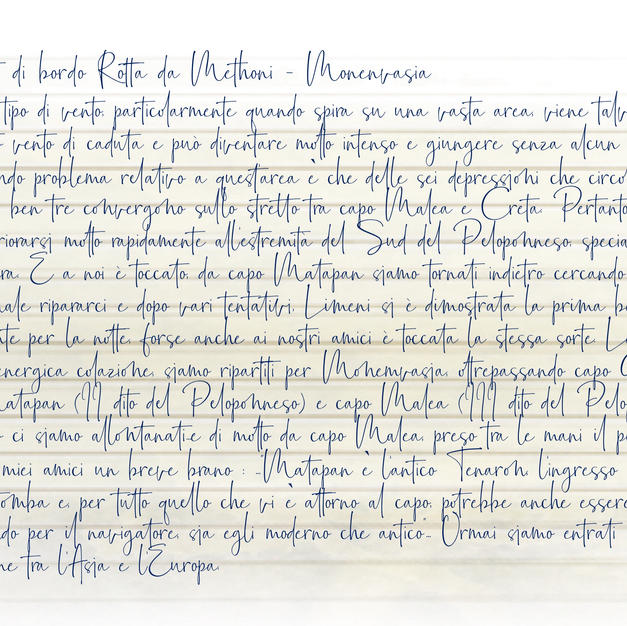 di bordo Rotta da Methoni - Monenvasia
tipo di vento, particolarmente quando spira su una vasta area, viene talv
vento di caduta e può diventare molto intenso e giungere senza alcun
ndo problema relativo a quest'area è che delle sei depressioni che circo
ben tre convergono sullo stretto tra capo Malea e Creta. Pertanto
riorarsi molto rapidamente all'estremità del Sud del Peloponneso, specia
ra. E a noi è toccato, da capo Matapan siamo tornati indietro cercando
ale ripararci e dopo vari tentativi, Limeni si è dimostrata la prima b
te per la notte, forse anche ai nostri amici è toccata la stessa sorte. L
energica colazione, siamo ripartiti per Monemvasia, oltrepassando capo
atapan (II dito del Peloponneso) e capo Malea (III dito del Pelo
ci siamo allontanati e di molto da capo Malea, preso tra le mani il p
miei amici un breve brano : -Matapan è l'antico Tenaron, l'ingresso
omba e, per tutto quello che vi è attorno al capo, potrebbe anche essere
do per il navigatore, sia egli moderno che antico- Ormai siamo entrati
ne tra l'Asia e l'Europa.